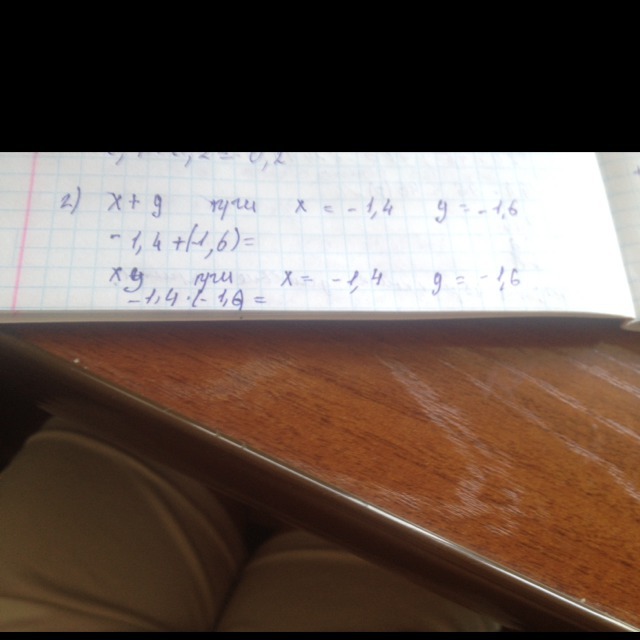 г) x + y при x = -1,4 y = -1,6
-1,4 + (-1,6) =
xy при x = -1,4 y = -1,6
-1,4 · (-1,6) =